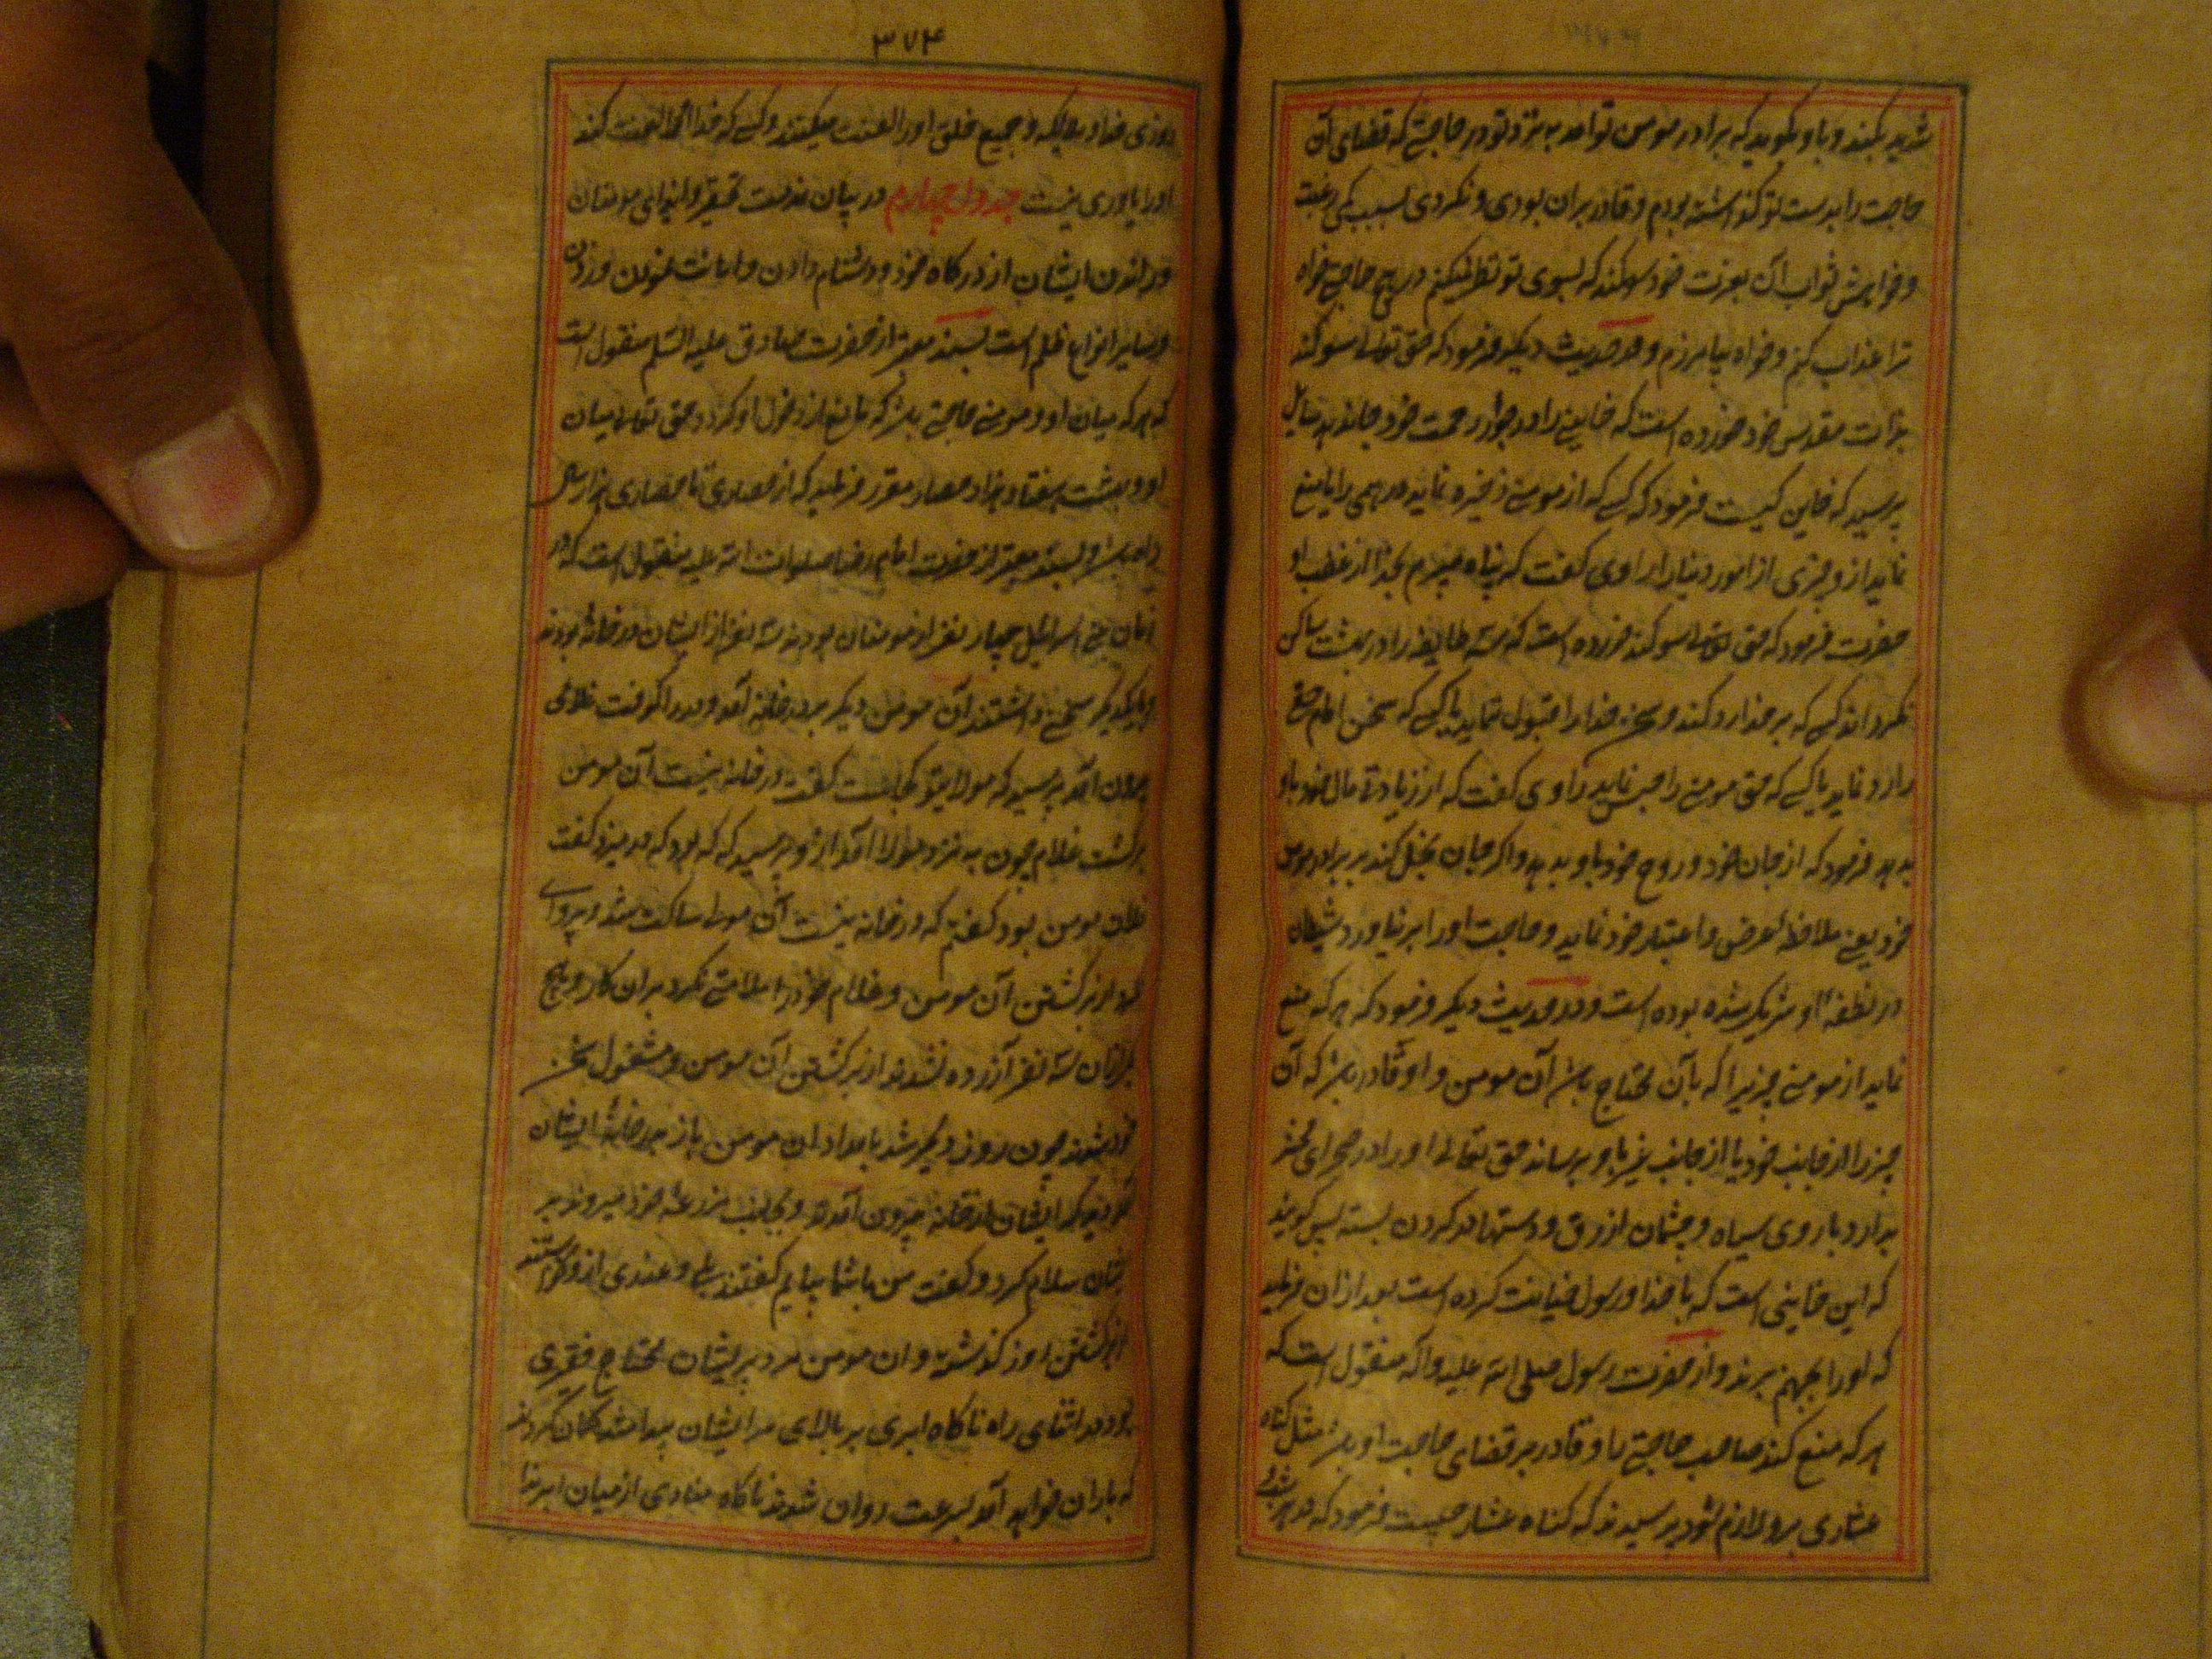 شدید بکنند و باو گوید که برادر مومن تو آمد به نزد تو در حاجتی که قضای آن
حاجت را بدست تو گذاشته بودم و قادر بران بودی و نکردی بسبب کمی رغبت
و خواهش ثواب آن بعزت خود سوگند که بسوی تو نظر نمیکنم در هیچ حاجتی خواه
ترا عذاب کنم و خواه بیامرزم و در حدیث دیگر فرمود که حق تعالی سوگند
بذات مقدس خود خورده است که خاینی را در جوار رحمت خود جا ندهد سایل
پرسید که خاین کیست فرمود که کسی که از مومنی ذخیره نماید درهمی را یا منع
نماید ازو چیزی از امور دنیا را راوی گفت که پناه میبرم بخدا از غضب او
حضرت فرمود که حق تعالی سوگند خورده است که سه طایفه را در بهشت ساکن
نگرداند کسی که بر خدا رد کند و سخن خدا را قبول ننماید یا کسی که سخن امام حق
را رد نماید یا کسی که حق مومنی را حبس نماید راوی گفت که از زیادتی مال خود باو
بدهد فرمود که از جان خود و روح خود باو بدهد و اگر جان بخل کند بر برادر مومن
خود یعنی ملاحظه عرض و اعتبار خود نماید و حاجت او را برنیاورد شیطان
در نطفه او شریک شده بوده است و در حدیث دیگر فرمود که هر که منع
نماید از مومنی چیزیرا که بآن محتاج باشد آن مومن و او قادر باشد که آن
چیز را از جانب خود یا از جانب غیر باو برساند حق تعالی او را در صحرای محشر
بدارد با روی سیاه و چشمان ازرق و دستها در گردن بسته پس گویند
که این خاینی است که با خدا و رسول خیانت کرده است بعد از آن فرماید
که او را بجهنم برند و از حضرت رسول صلی الله علیه و آله منقول است که
هر که منع کند صاحب حاجتی را و قادر بر قضای حاجت او باشد مثل گناه
عشاری برو لازم شود پرسیدند که گناه عشار چیست فرمود که در هر شب
۳۷۴
روزی خدا و ملائکه و جمیع خلق او را لعنت میکنند و کسی که خدا او را لعنت کند
او را یاوری نیست جدول چهارم در بیان مذمت تحقیر و ایذای مومنان
و راندن ایشان از درگاه خود و دشنام دادن و اهانت نمودن و زدن
و سایر انواع ظلم است بسند معتبر از حضرت صادق علیه السلم منقول است
که هر که میان او و مومنی حاجتی باشد که مانع از دخول او گردد حق تعالی میان
او و بهشت هفتاد هزار حصار مقرر فرماید که از حصاری تا حصاری هزار سال
راه باشد و بسند معتبر از حضرت امام رضا صلوات الله علیه منقول است که در
زمان بنی اسرائیل چهار نفر از مومنان بودند سه نفر از ایشان در خانه بودند
و با یکدیگر سخنی داشتند آن مومن دیگر بدر خانه آمد و در را کوفت غلامی
بیرون آمد پرسید که مولای تو کجاست گفت در خانه نیست آن مومن
برگشت غلام چون به نزد مولا آمد از و پرسید که که بود که در میزد گفت
فلان مومن بود گفتم که در خانه نیست آن مولا ساکت شد و پروای
نکرد از برگشتن آن مومن و غلام خود را ملامتی نکرد بر ان کار و هیچ
یک از آن سه نفر آزرده نشدند از برگشتن آن مومن و مشغول سخن
خود شدند چون روز دیگر شد بامداد ان مومن باز بدر خانه ایشان
آمد دید که ایشان از خانه بیرون آمدند و بجانب مزرعه خود میروند بر
ایشان سلام کرد و گفت من با شما بیایم گفتند بلی و عذری ازو نخواستند
از برگشتن روز گذشته و ان مومن مرد پریشان محتاج فقیری
بود در اثنای راه ناگاه ابری بر بالای سر ایشان پیدا شد گمان کردند
که باران خواهد آمد بسرعت روان شدند ناگاه منادی از میان ابر ندا